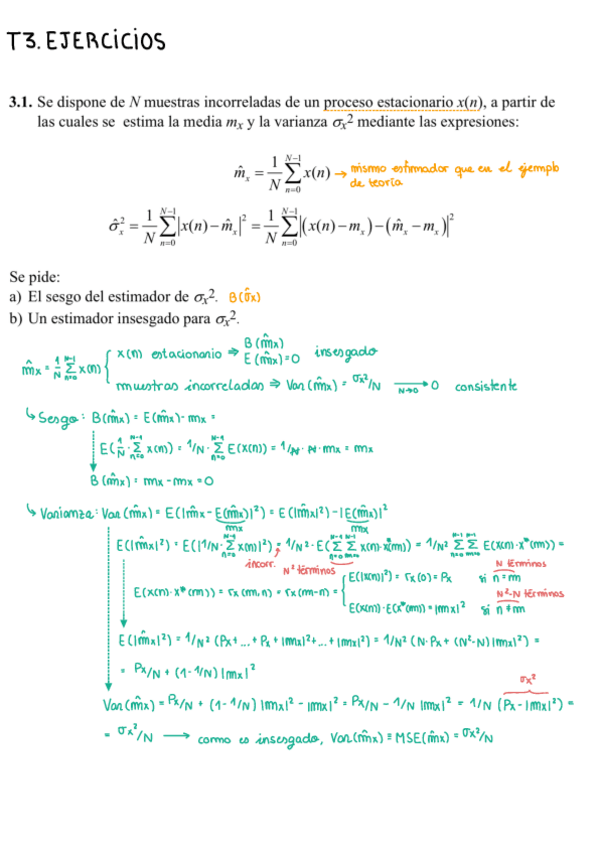 T3. EJERCICIOS
3.1. Se dispone de N muestras incorreladas de un proceso estacionario x(n), a partir de
las cuales se estima la media mₓ y la varianza σₓ² mediante las expresiones:
m̂ₓ = 1/N Σ_{n=0}^{N-1} x(n) → mismo estimador que en el ejemplo
de teoría
σ̂ₓ² = 1/N Σ_{n=0}^{N-1} |x(n) − m̂ₓ|² = 1/N Σ_{n=0}^{N-1} |(x(n) − mₓ) − (m̂ₓ − mₓ)|²
Se pide:
a) El sesgo del estimador de σₓ². B(σ̂x)
b) Un estimador insesgado para σₓ².
m̂x = 1/N Σ_{n=0}^{N-1} x(n) { x(n) estacionario ⇒ B(m̂x) E(m̂x)=0 insesgado
muestras incorreladas ⇒ Var(m̂x) = σx²/N →_{N→0} 0 consistente
↳ Sesgo: B(m̂x) = E(m̂x) - mx =
E(1/N · Σ_{n=0}^{N-1} x(n)) = 1/N · Σ_{n=0}^{N-1} E(x(n)) = 1/N · N · mx = mx
B(m̂x) = mx - mx = 0
↳ Varianza: Var(m̂x) = E(|m̂x - E(m̂x)|²) = E(|m̂x|²) - |E(m̂x)|²
mx mx
E(|m̂x|²) = E(|1/N · Σ_{n=0}^{N-1} x(n)|²) = 1/N² · E(Σ_{n=0}^{N-1} Σ_{m=0}^{N-1} x(n)·x*(m)) = 1/N² Σ_{n=0}^{N-1} Σ_{m=0}^{N-1} E(x(n)·x*(m)) =
incorr. N² términos N términos
E(x(n)·x*(m)) = rx(m,n) = rx(m-n) = { E(|x(n)|²) = rx(0) = Px si n=m
N²-N términos
E(x(n))·E(x*(m)) = |mx|² si n≠m
E(|m̂x|²) = 1/N² (Px + ... + Px + |mx|² + ... + |mx|²) = 1/N² (N·Px + (N²-N)|mx|²) =
= Px/N + (1-1/N) |mx|²
σx²
Var(m̂x) = Px/N + (1-1/N) |mx|² - |mx|² = Px/N - 1/N |mx|² = 1/N (Px - |mx|²) =
= σx²/N → como es insesgado, Var(m̂x) ≡ MSE(m̂x) = σx²/N